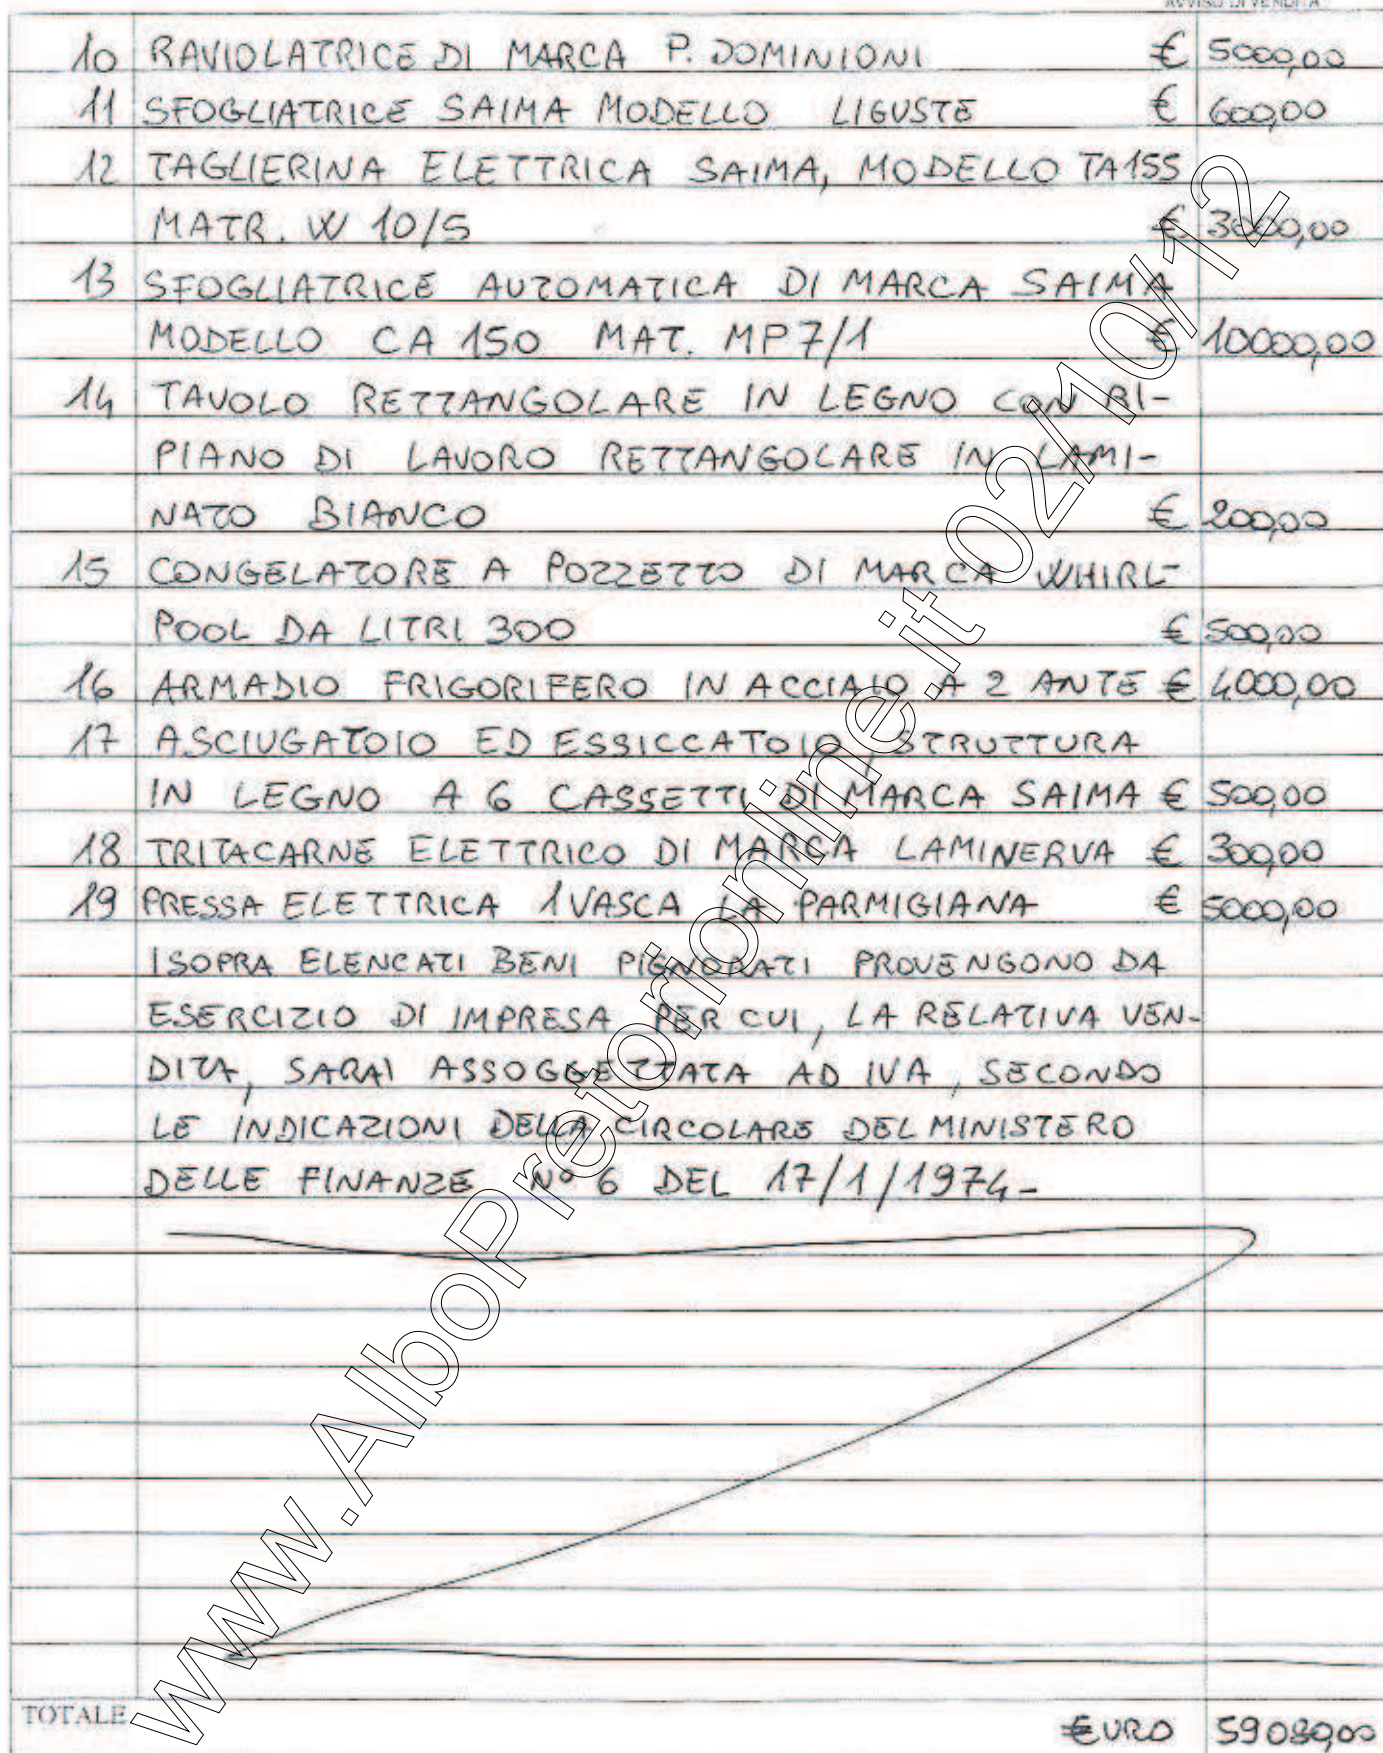 AVVISO DI VENDITA
10 RAVIOLATRICE DI MARCA P. DOMINIONI € 5000,00
11 SFOGLIATRICE SAIMA MODELLO LIGUSTE € 600,00
12 TAGLIERINA ELETTRICA SAIMA, MODELLO TA155
MATR. W 10/5 € 3000,00
13 SFOGLIATRICE AUTOMATICA DI MARCA SAIMA
MODELLO CA 150 MAT. MP7/1 € 10000,00
14 TAVOLO RETTANGOLARE IN LEGNO CON RI-
PIANO DI LAVORO RETTANGOLARE IN LAMI-
NATO BIANCO € 200,00
15 CONGELATORE A POZZETTO DI MARCA WHIRL-
POOL DA LITRI 300 € 500,00
16 ARMADIO FRIGORIFERO IN ACCIAIO A 2 ANTE € 4000,00
17 ASCIUGATOIO ED ESSICCATOIO, STRUTTURA
IN LEGNO A 6 CASSETTI DI MARCA SAIMA € 500,00
18 TRITACARNE ELETTRICO DI MARCA LAMINERVA € 300,00
19 PRESSA ELETTRICA 1 VASCA LA PARMIGIANA € 5000,00
I SOPRA ELENCATI BENI PIGNORATI PROVENGONO DA
ESERCIZIO DI IMPRESA PER CUI, LA RELATIVA VEN-
DITA, SARAI ASSOGGETTATA AD IVA, SECONDO
LE INDICAZIONI DELLA CIRCOLARE DEL MINISTERO
DELLE FINANZE N° 6 DEL 17/1/1974-
TOTALE €URO 59080,00
www.AlboPretorionline.it 02/10/12